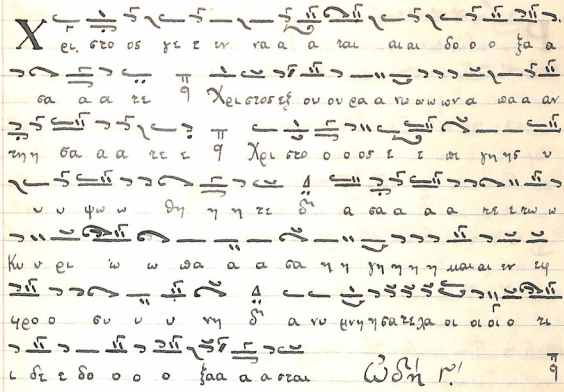 Χ ρι στο ος γε ε εν να α α ται αι αι δο ο ο ξα α
σα α α τε Χρι στος εξ ου ου ρα α νω ω ω ων α πα α αν
τη η σα α α τε ε Χρι στο ο ο ος ε ε πι γη ης υ
υ υ ψω ω θη η η τε α σα α α α τε ε τω ω
Κυ υ ρι ι ω ω πα α α σα η η γη η η η και αι εν ευ
φρο ο συ υ υ νη α νυ μνη η σα τε λα οι οι οι ο τι
ι δε ε δο ο ο ο ξα α α α σται ᾠδὴ γ'